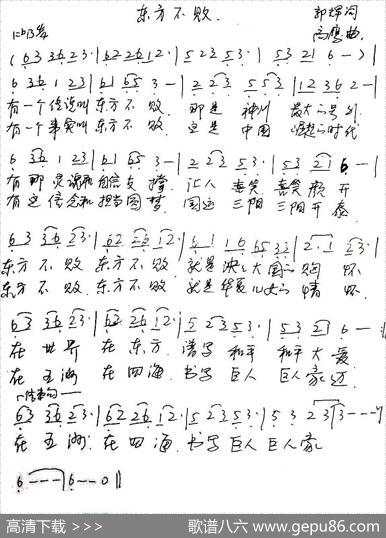 东方不败
1=♭B 4/4
郭辉词
曲
(6̣3 36 23·|62 26 12·|5 2 2 3 5 3·|5 3 21 6 -)|
6 36 1 23|61 65 3 -|2 23 5 53|12 36 2 -|
有一个传说叫东方不败 那是 神州 最大的号列
有一个事实叫东方不败 这是 中国 崛起的时代
6 36 1 23|61 65 3 -|2 23 5 3·|53 21 6 -|
有那灵魂和自信支撑 让人 喜笑 喜笑颜开
有这信念和担当圆梦 国运 三阳 三阳开泰
63 36 23·|62 26 12·|61 16 65 33|2·1 23·|
东方不败 东方不败 就是泱泱大国的胸怀
东方不败 东方不败 就是华夏儿女的情怀
63 36 23·|62 26 12·|5 23 53·|53 21 6 -|
在世界 在东方 谱写和平 和平大爱
在五洲 在四海 书写巨人 巨人豪迈
结束句
63 36 23·|62 26 12·|5 23 53·|5 3 23|3---|
在五洲 在四海 书写巨人 巨人豪
6---|6--0‖
高清下载 >>>
歌谱八六 www.gepu86.com